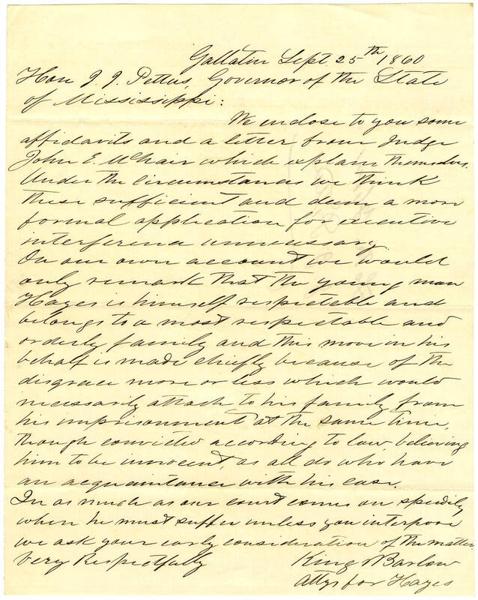 Gallatin Sept 25th 1860
Hon J. J. Pettus, Governor of the State
of Mississippi:
We enclose to you some
affidavits and a letter from Judge
John E. McNair which explain themselves.
Under the circumstances we think
these sufficient and deem a more
formal application for executive
interference unnecessary
On our own account we would
only remark that the young man
Hayes is himself respectable and
belongs to a most respectable and
orderly family and this move in his
behalf is made chiefly because of the
disgrace more or less which would
necessarily attach to his family from
his imprisonment at the same time,
though convicted according to law believing
him to be innocent, as all do who have
an acquaintance with his case.
In as much as our court comes on speedily
when he must suffer unless you interpose
we ask your early consideration of the matter,
Very Respectfully King & Barlow
attys for Hayes